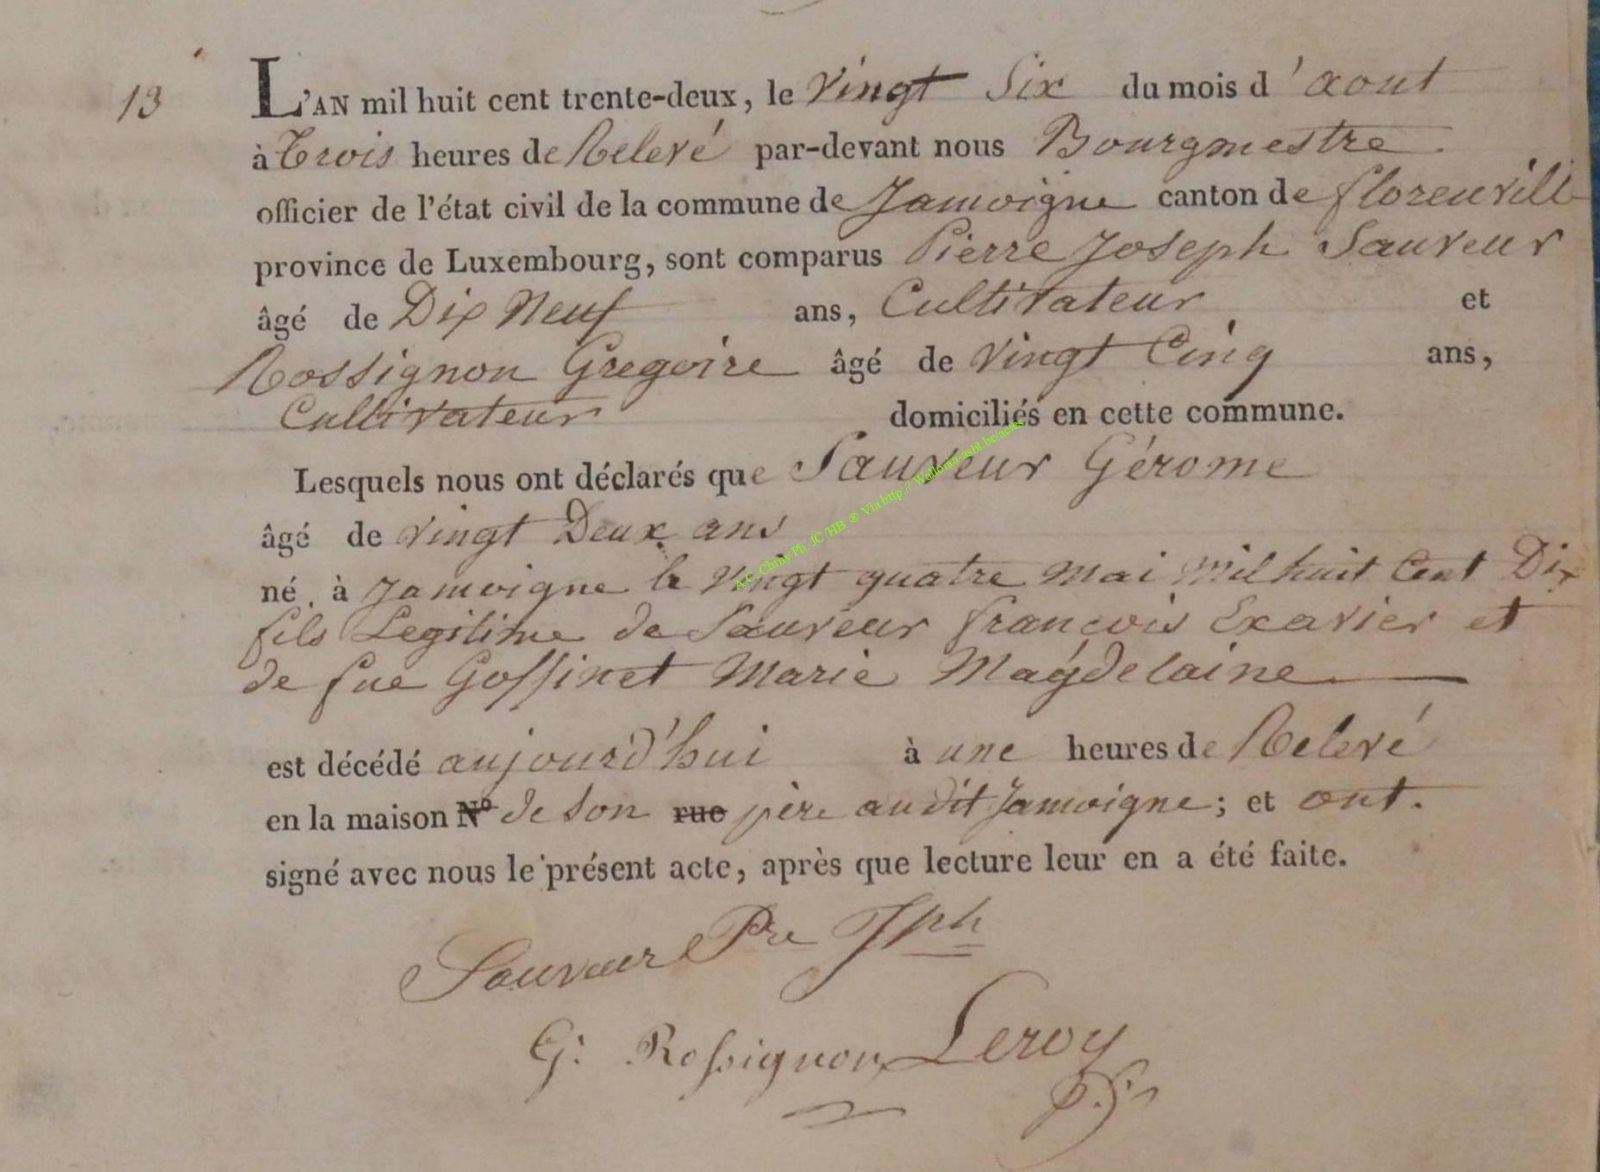 13
L'AN mil huit cent trente-deux, le vingt Six du mois d'aout
à Trois heures de Relevé par-devant nous Bourgmestre
officier de l'état civil de la commune de Jamoigne canton de florenville
province de Luxembourg, sont comparus Pierre Joseph Sauveur
âgé de Dix Neuf ans, Cultivateur et
Rossignon Gregoire âgé de vingt Cinq ans,
Cultivateur domiciliés en cette commune.
Lesquels nous ont déclarés que Sauveur Gérome
âgé de vingt Deux ans
né à Jamoigne le vingt quatre Mai Mil huit Cent Dix
fils Legitime de Sauveur françois Exavier et
de fue Goffinet Marie Magdelaine
est décédé aujourd'hui à une heures de Relevé
en la maison N° de son rue père audit Jamoigne; et ont.
signé avec nous le présent acte, après que lecture leur en a été faite.
Sauveur Pre Jph
G: Rossignon Leroy
A.C. Chiny Ph. JC HB ® Via http:// Wallonia-asbl.be/actes